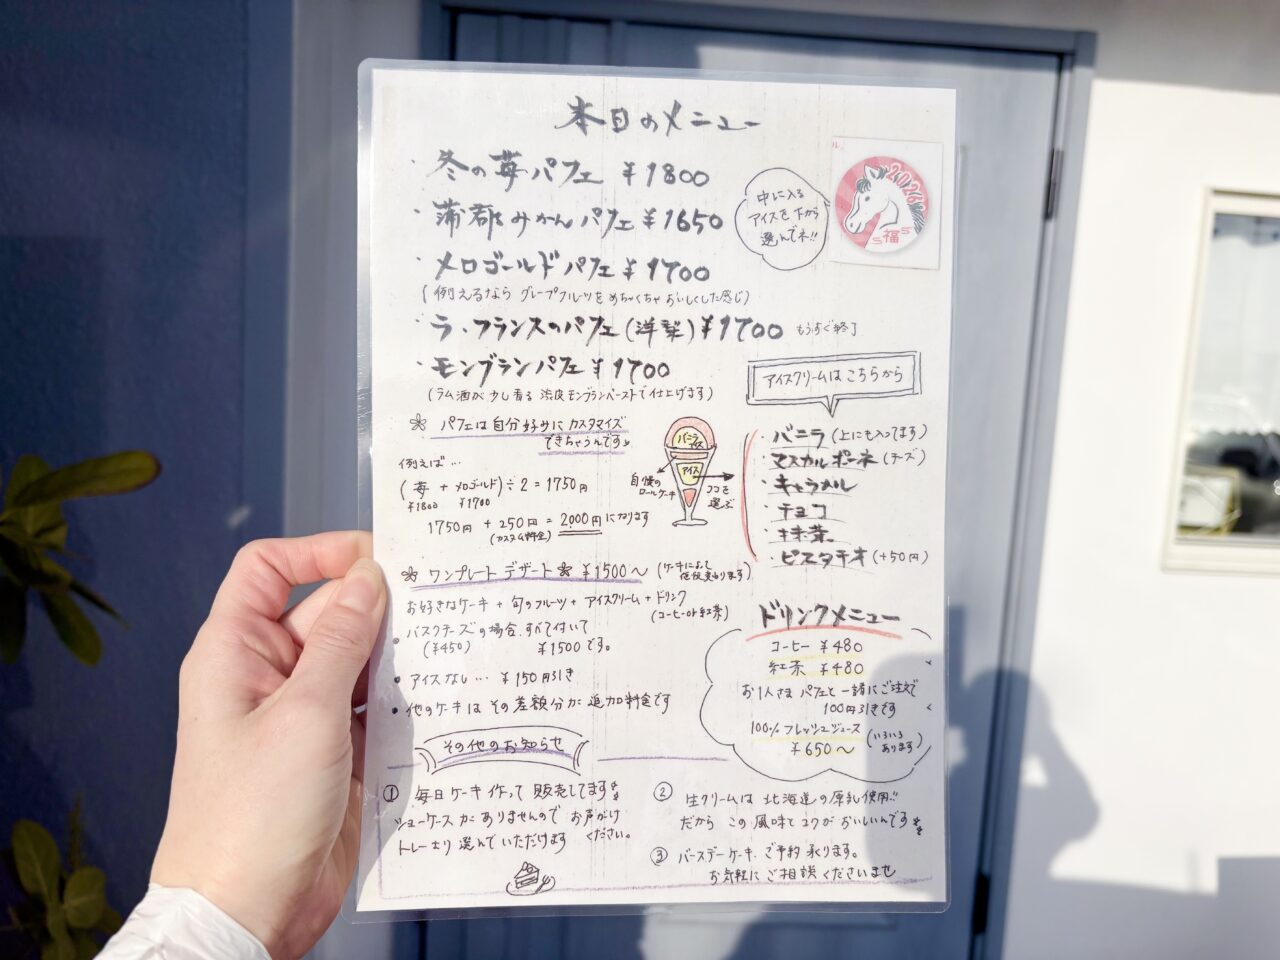 本日のメニュー
・冬の苺パフェ ¥1800
・蒲郡みかんパフェ ¥1650
・メロゴールドパフェ ¥1700
(例えるなら グレープフルーツをめちゃくちゃおいしくした感じ)
・ラ・フランスのパフェ(洋梨) ¥1700 もうすぐ終了
・モンブランパフェ ¥1700
(ラム酒が少し香る 渋皮モンブランペーストで仕上げます)
中に入る
アイスを下から
選んでネ!!
2026
福
パフェは自分好みにカスタマイズ
できちゃうんです
例えば…
(苺 + メロゴールド) ÷2 = 1750円
¥1800 ¥1700
1750円 + 250円 = 2000円になります
(カスタム料金)
バニラ
アイス
自慢の
ロールケーキ
ココを
選ぶ
アイスクリームはこちらから
・バニラ(上にも入ってます)
・マスカルポーネ(チーズ)
・キャラメル
・チョコ
・抹茶
・ピスタチオ(+50円)
ワンプレートデザート ¥1500〜 (ケーキによって
値段変わります)
お好きなケーキ + 旬のフルーツ + アイスクリーム + ドリンク
(コーヒーor紅茶)
・バスクチーズの場合 すべて付いて
(¥450) ¥1500です。
・アイスなし… ¥150円引き
・他のケーキは その差額分が追加料金です
ドリンクメニュー
コーヒー ¥480
紅茶 ¥480
お1人さま パフェと一緒にご注文で
100円引きです
100%フレッシュジュース
¥650〜 (いろいろ
あります)
その他のお知らせ
① 毎日ケーキ作って販売してます
ショーケースがありませんので お声がけ
ください。
トレーより選んでいただけます
② 生クリームは北海道の原乳使用!!
だから この風味とコクがおいしいんです
③ バースデーケーキ ご予約承ります。
お気軽にご相談くださいませ